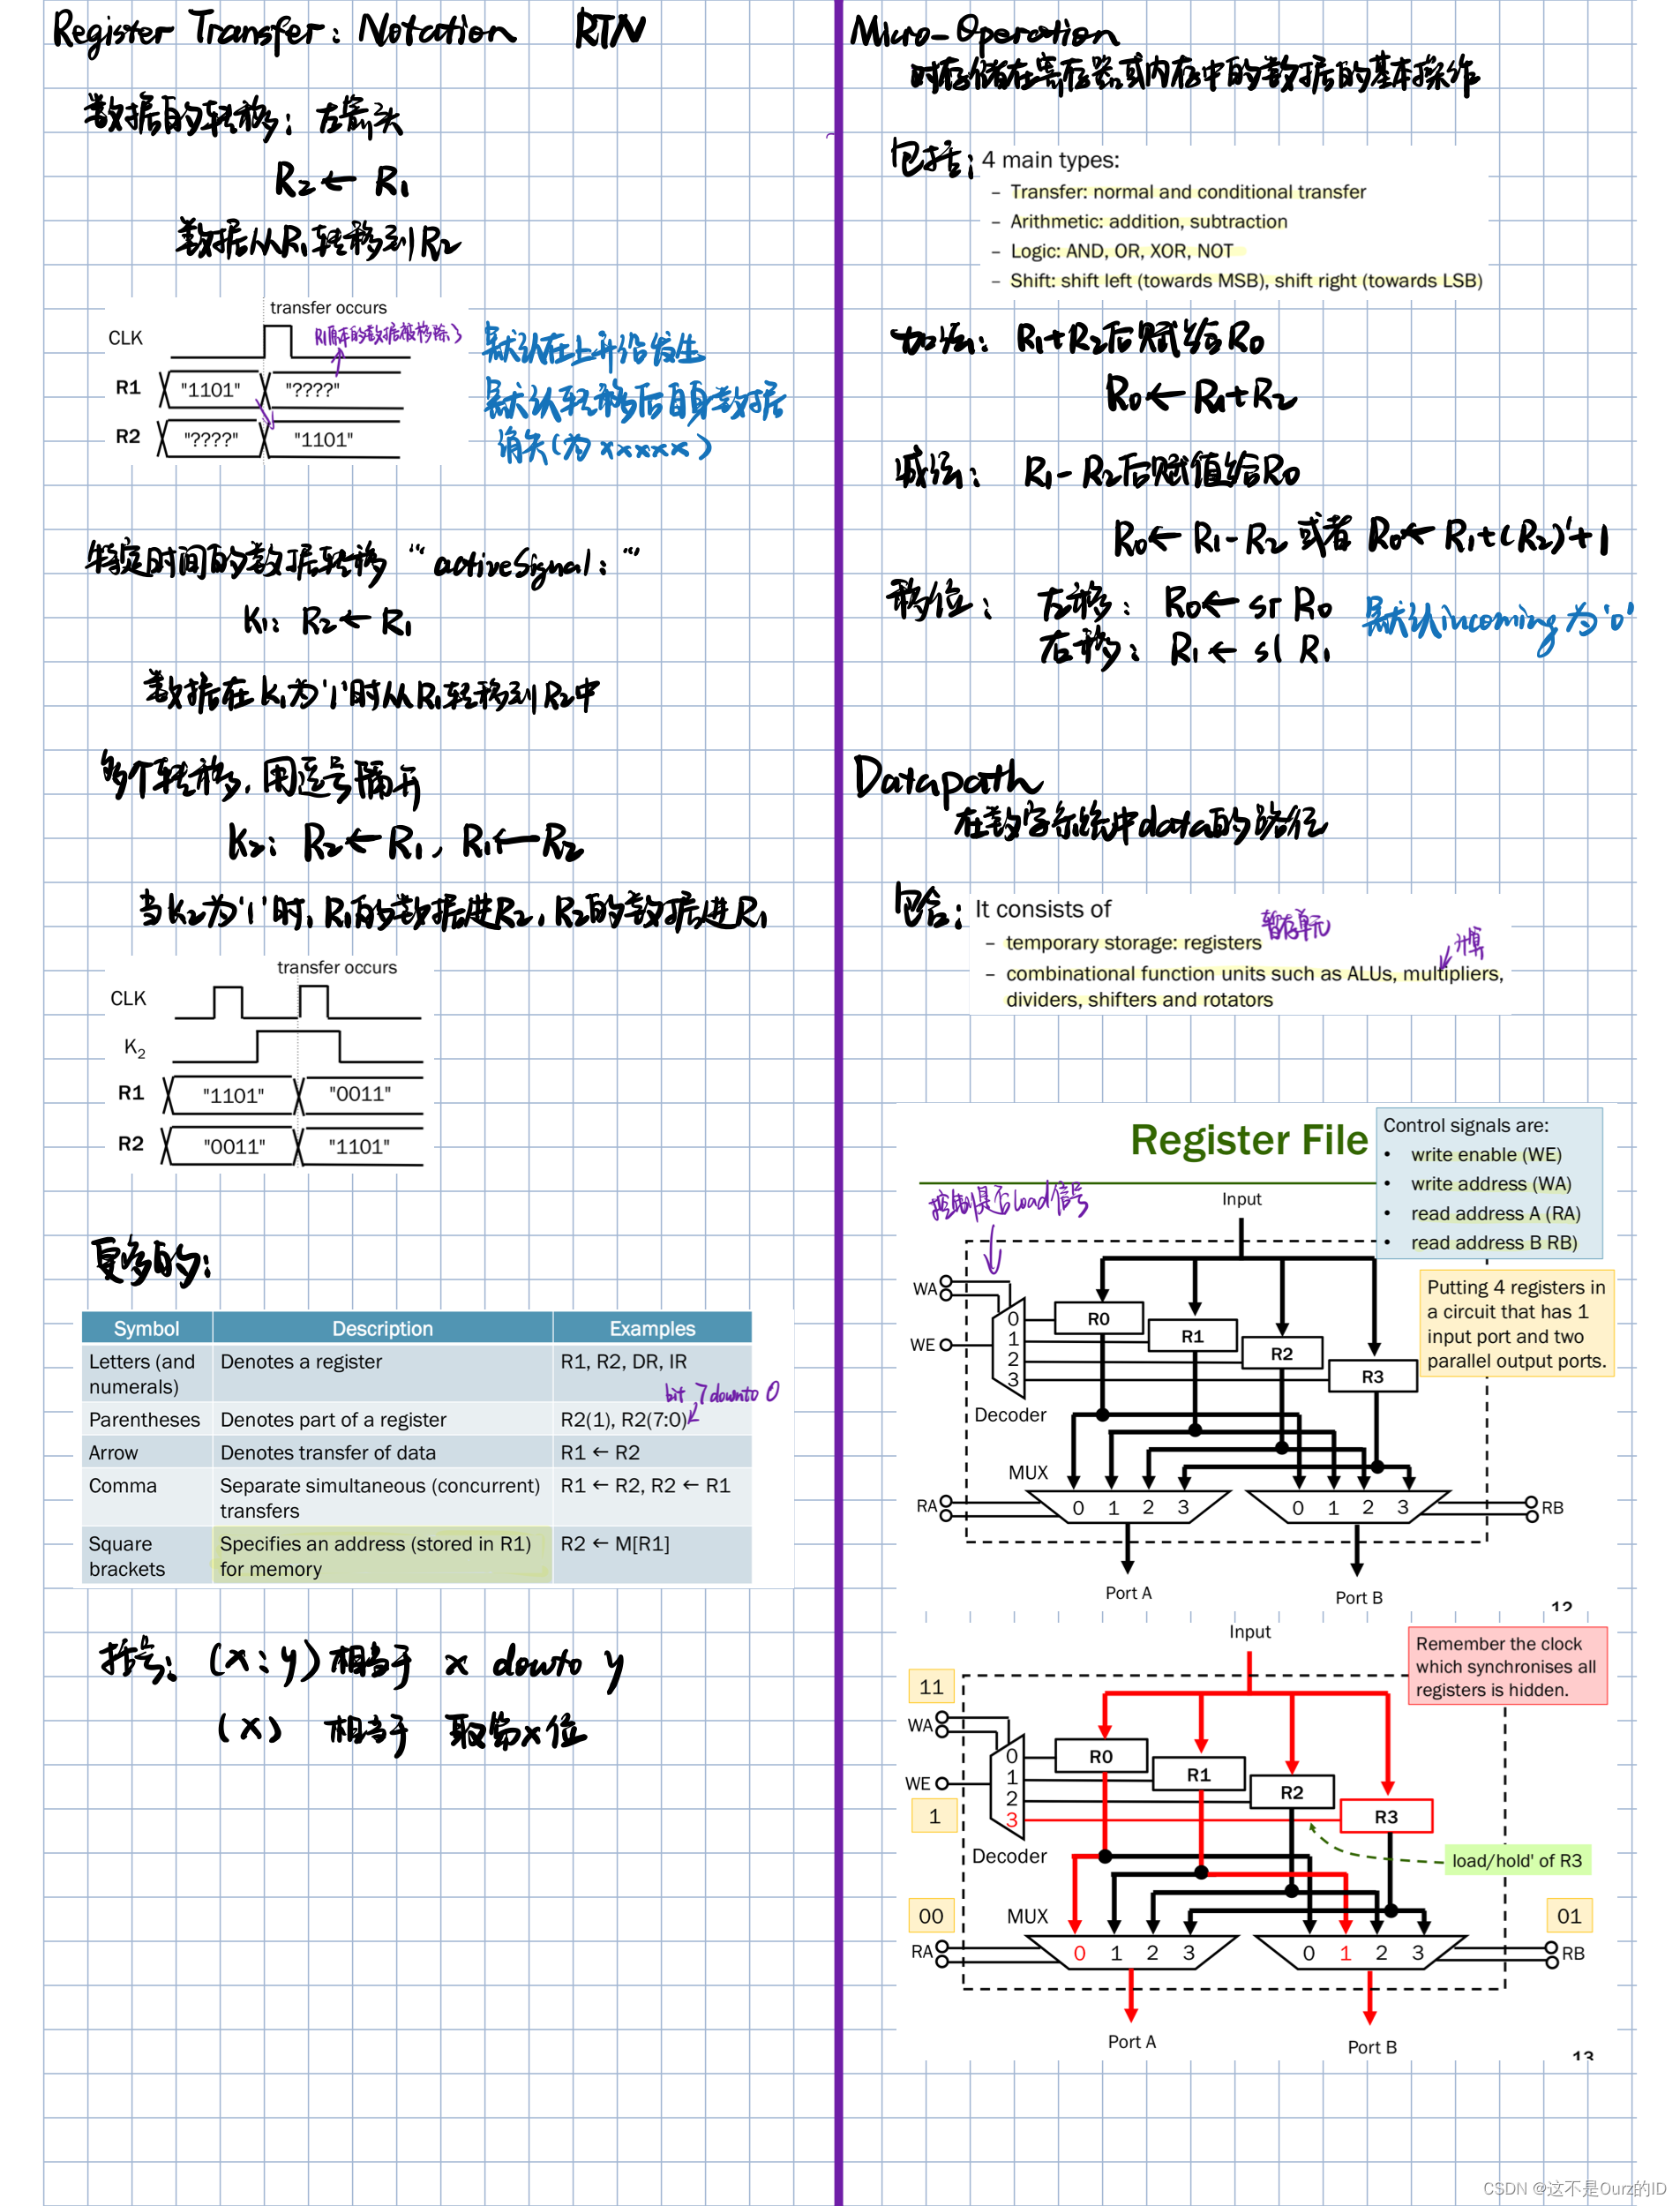 Register Transfer: Notation RTN
数据的转移: 左箭头
R2 ← R1
数据从R1转移到R2
transfer occurs
CLK
R1原本的数据被移除了
R1 "1101" "????"
R2 "????" "1101"
默认在上升沿发生
默认转移后自身数据
消失(为xxxxx)
特定时间的数据转移 "activeSignal:"
K1: R2 ← R1
数据在K1为'1'时从R1转移到R2中
多个转移,用逗号隔开
K2: R2 ← R1, R1 ← R2
当K2为'1'时,R1的数据进R2,R2的数据进R1
transfer occurs
CLK
K2
R1 "1101" "0011"
R2 "0011" "1101"
更多的:
Symbol Description Examples
Letters (and numerals) Denotes a register R1, R2, DR, IR
bit 7 downto 0
Parentheses Denotes part of a register R2(1), R2(7:0)
Arrow Denotes transfer of data R1 ← R2
Comma Separate simultaneous (concurrent) transfers R1 ← R2, R2 ← R1
Square brackets Specifies an address (stored in R1) for memory R2 ← M[R1]
括号: (x:y) 相当于 x dowto y
(x) 相当于 取第x位
Micro-Operation
对存储在寄存器或内存中的数据的基本操作
包括: 4 main types:
– Transfer: normal and conditional transfer
– Arithmetic: addition, subtraction
– Logic: AND, OR, XOR, NOT
– Shift: shift left (towards MSB), shift right (towards LSB)
加法: R1+R2后赋给R0
R0 ← R1+R2
减法: R1-R2后赋值给R0
R0 ← R1-R2 或者 R0 ← R1+(R2)'+1
移位: 左移: R0 ← sr R0
右移: R1 ← sl R1
默认incoming为'0'
Datapath
在数字系统中data的路径
包含: It consists of
– temporary storage: registers 暂存单元
计算
– combinational function units such as ALUs, multipliers,
dividers, shifters and rotators
Register File
Control signals are:
• write enable (WE)
• write address (WA)
• read address A (RA)
• read address B RB)
控制是否load信号
Input
WA
WE
0
1
2
3
R0
R1
R2
R3
Putting 4 registers in
a circuit that has 1
input port and two
parallel output ports.
Decoder
MUX
RA 0 1 2 3 0 1 2 3 RB
Port A Port B
12
Input
Remember the clock
which synchronises all
registers is hidden.
11
WA
WE
1
0
1
2
3
R0
R1
R2
R3
Decoder
load/hold' of R3
00 MUX 01
RA 0 1 2 3 0 1 2 3 RB
Port A Port B
13
CSDN @这不是Ourz的ID